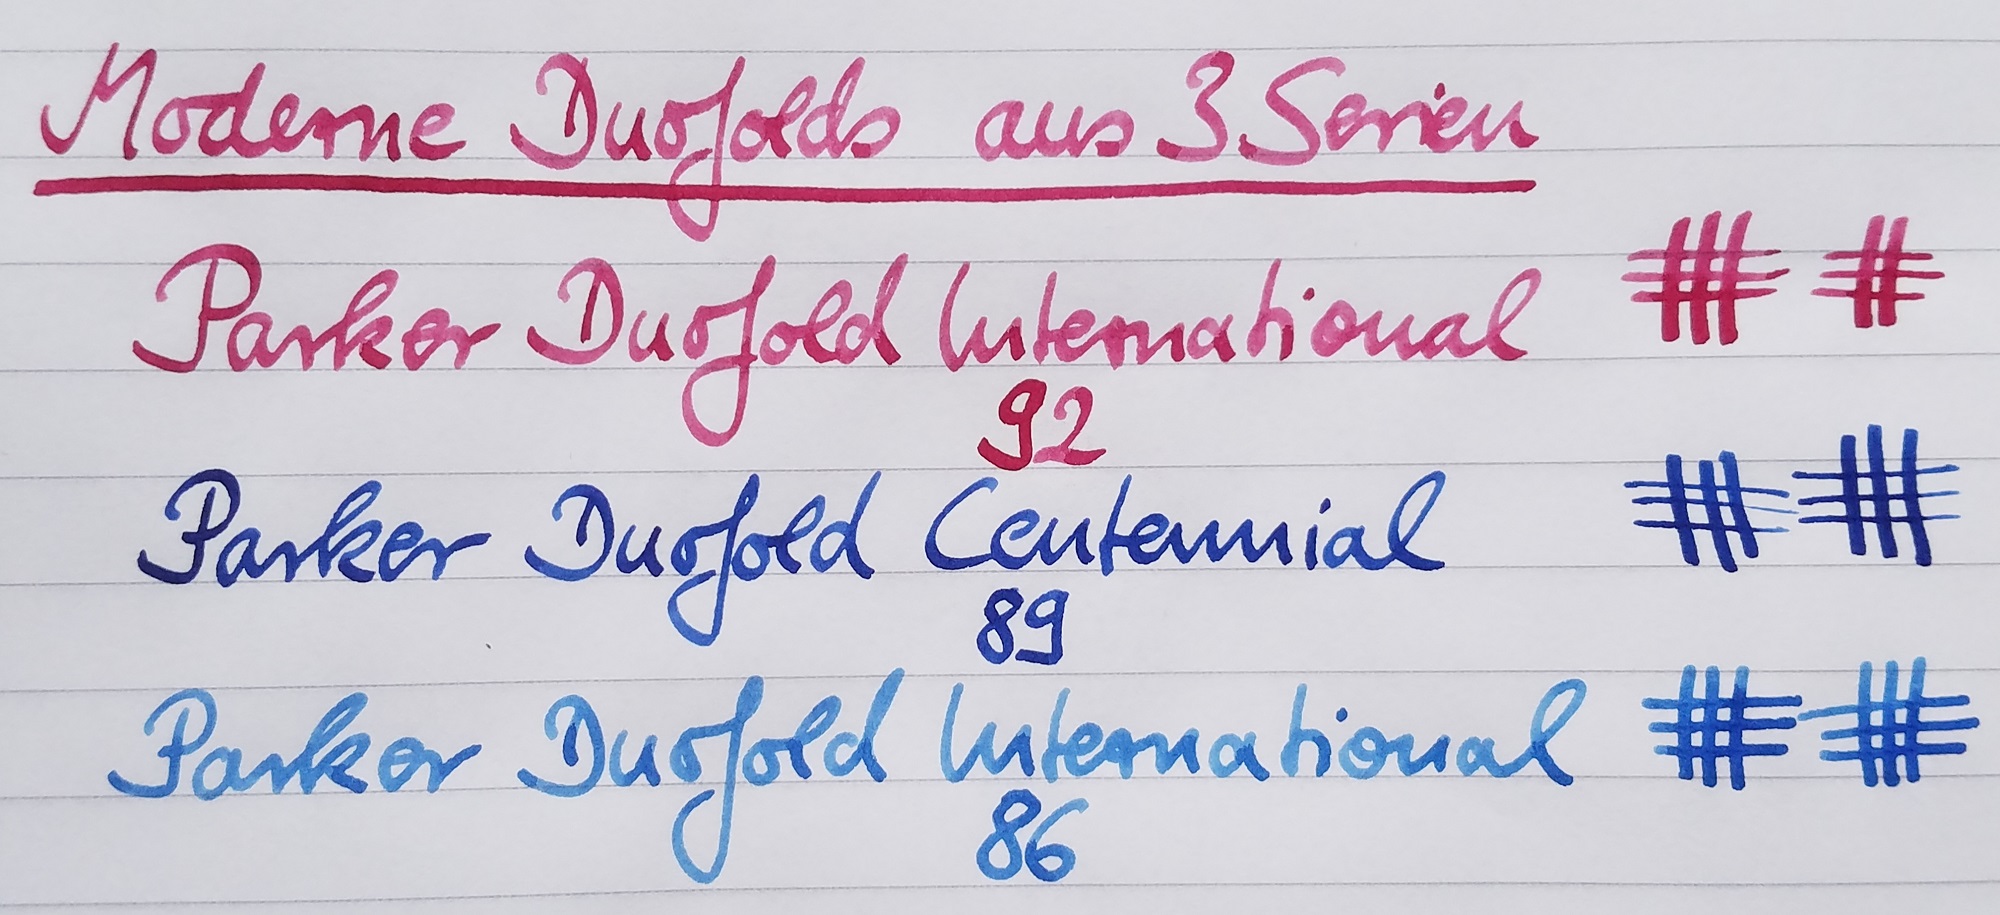 Moderne Duofolds aus 3 Serien
Parker Duofold International
92
Parker Duofold Centennial
89
Parker Duofold International
86